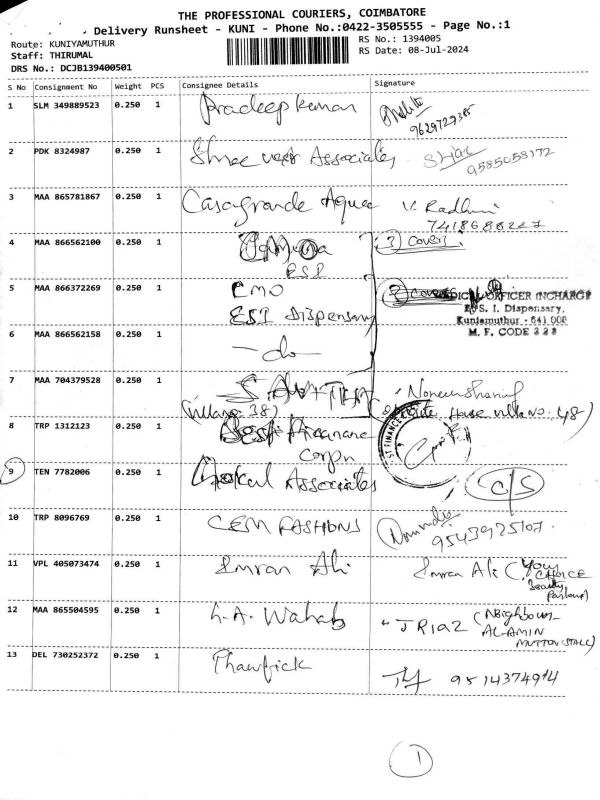 THE PROFESSIONAL COURIERS, COIMBATORE
Delivery Runsheet - KUNI - Phone No.:0422-3505555 - Page No.:1
Route: KUNIYAMUTHUR
Staff: THIRUMAL
DRS No.: DCJB139400501
RS No.: 1394005
RS Date: 08-Jul-2024
S No Consignment No Weight PCS Consignee Details Signature
1 SLM 349889523 0.250 1 Pradeep kumar
9629729385
2 PDK 8324987 0.250 1 Shree Associates
9585058172
3 MAA 865781867 0.250 1 Casagrande Aqua V. Radhni
7418688227
4 MAA 866562100 0.250 1 3) Covers.
ESI
5 MAA 866372269 0.250 1 CMO
ESI Dispensary
MEDICAL OFFICER INCHARGE
E. S. I. Dispensary,
Kuniamuthur - 641 008
M. F. CODE 328
6 MAA 866562158 0.250 1 -do-
7 MAA 704379528 0.250 1 SAVITHA
(Villa no. 38) House villa No: 48)
8 TRP 1312123 0.250 1 Best Finance
Corpn
ST FINANCE
9 TEN 7782006 0.250 1 Gokul Associates C/S
10 TRP 8096769 0.250 1 CEM FASHIONS
9543925107
11 VPL 405073474 0.250 1 Imran Ali Imran Ali (Your
CHOICE
Beauty
Parlour)
12 MAA 865504595 0.250 1 L.A. Wahab (Neighbour-
AL-AMIN
MUTTON STALL)
13 DEL 730252372 0.250 1 Thawfick 9514374914
1